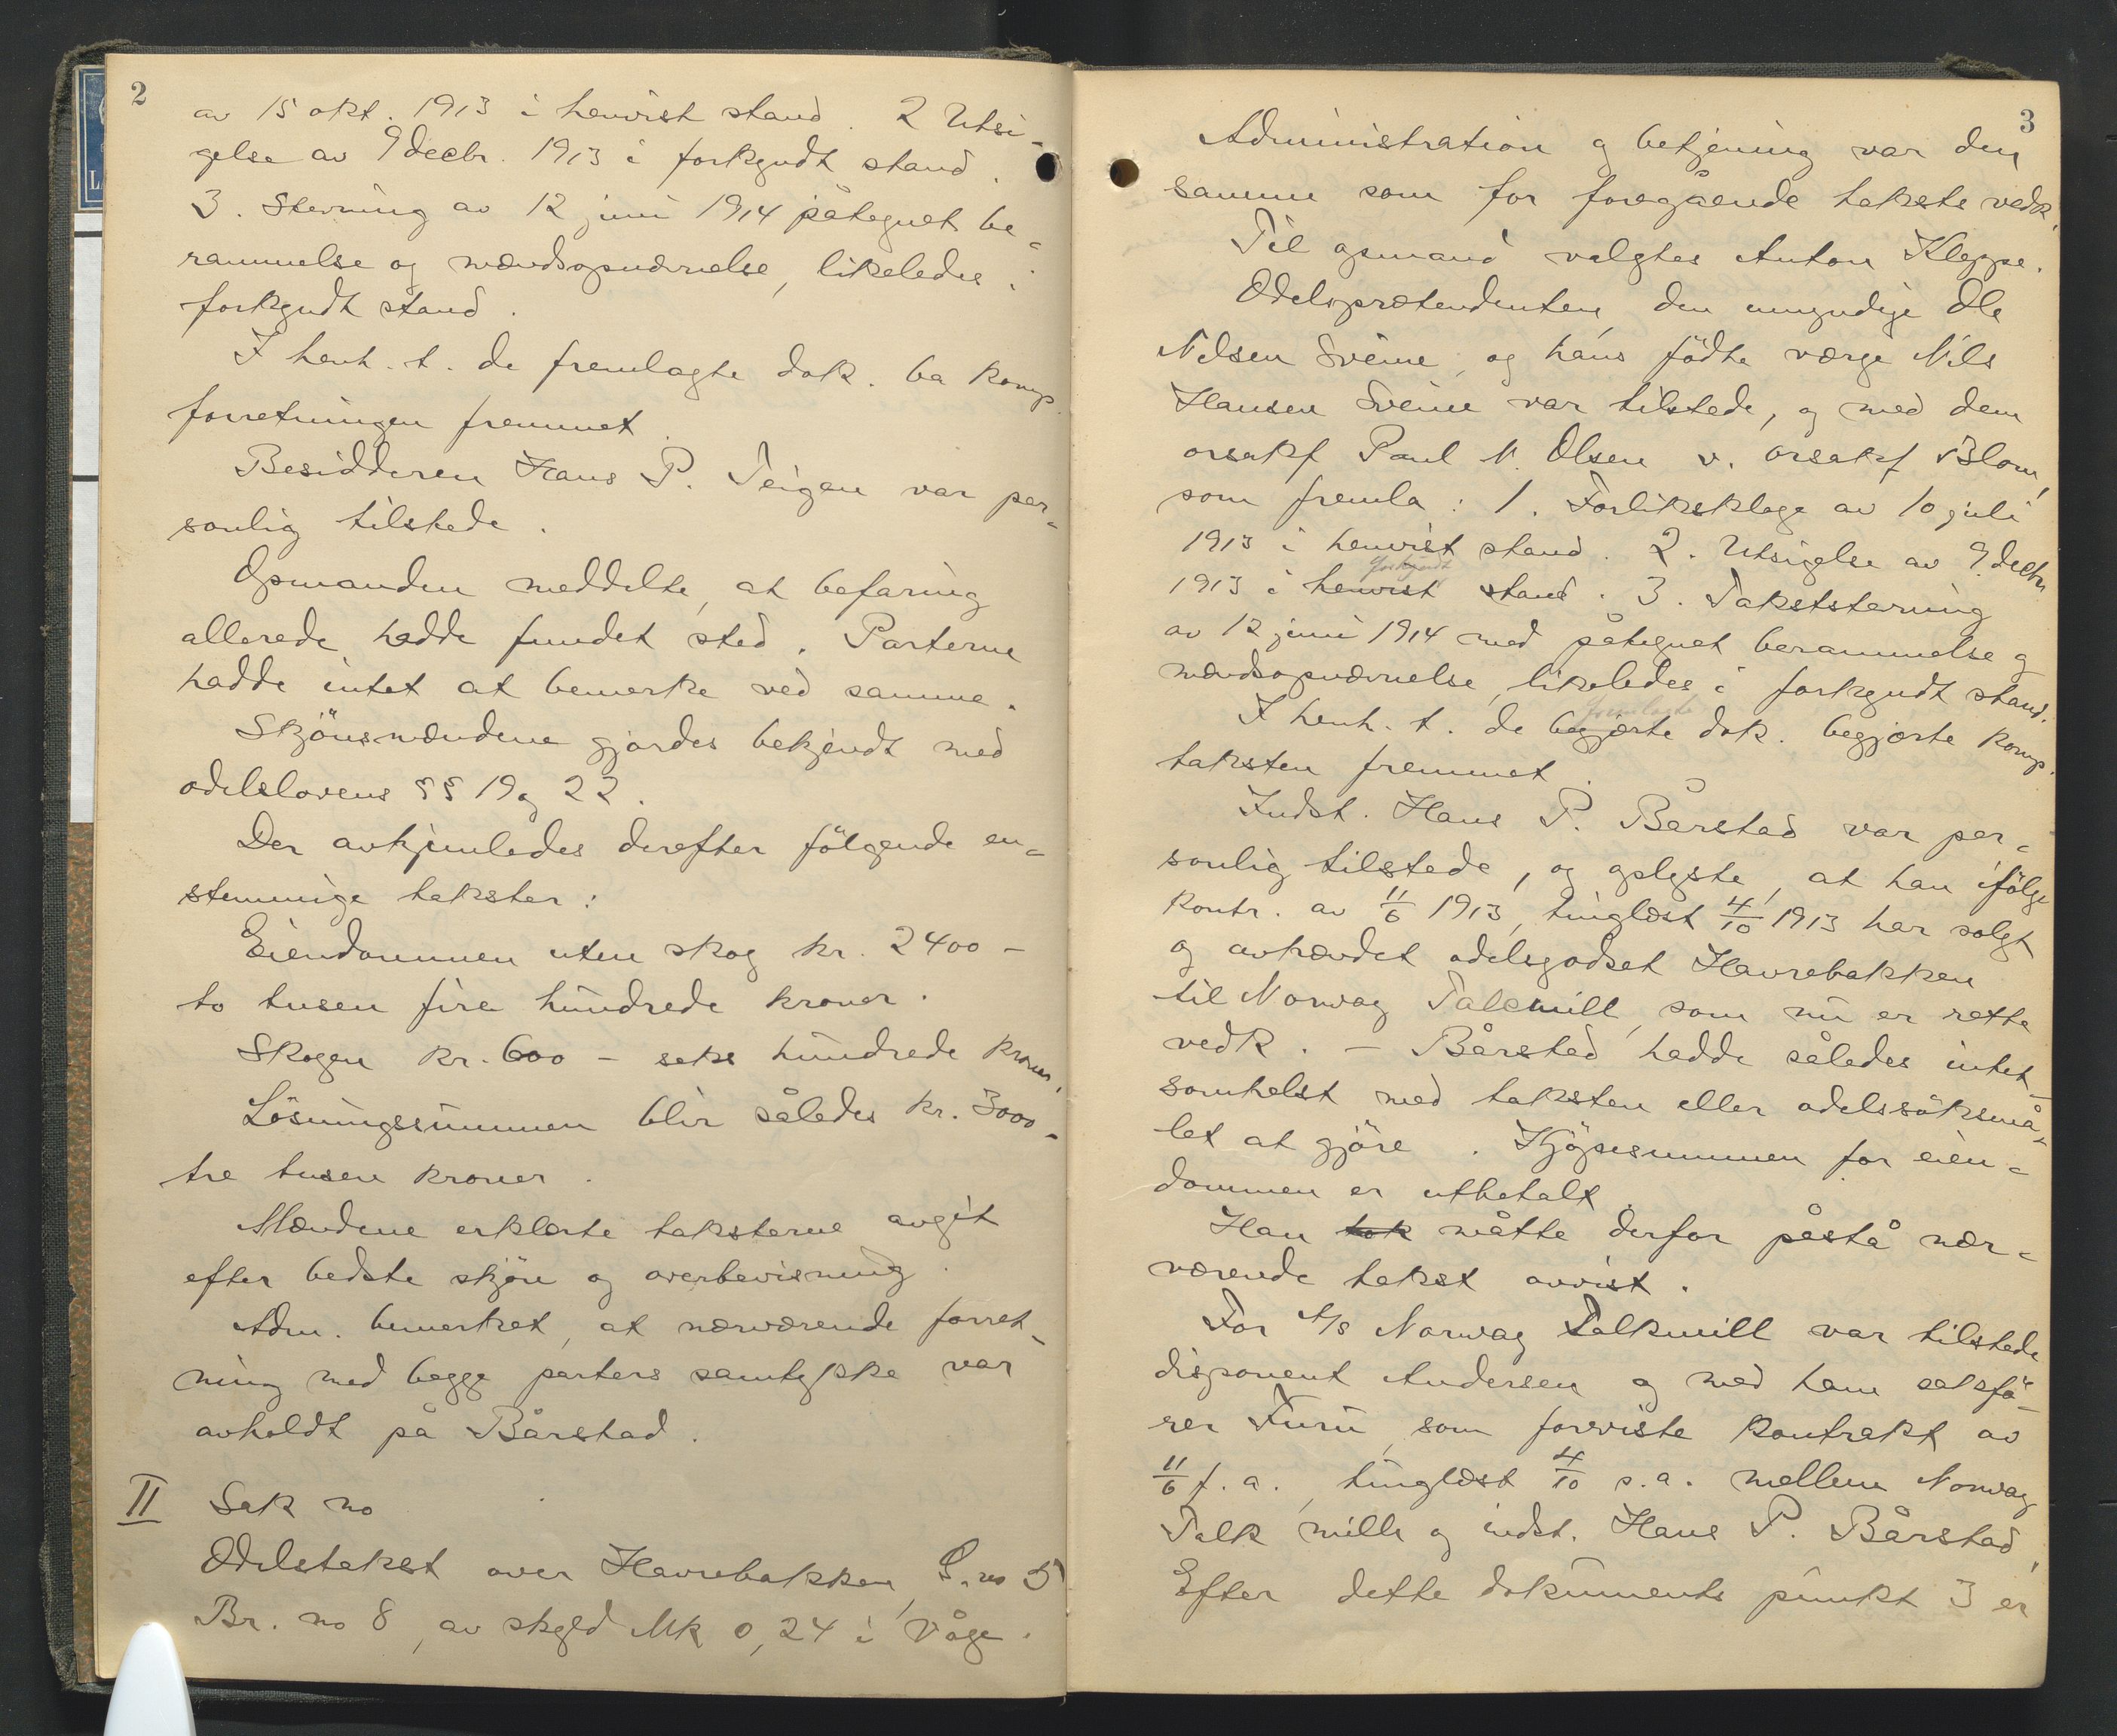 2
av 15 okt. 1913 i henvist stand. 2 Utsi-
gelse av 9 decbr. 1913 i forkyndt stand.
3. Stevning av 12 juni 1914 påtegnet be-
rammelse og mændsopnævnelse, likeledes i
forkyndt stand.
I henh. t. de fremlagte dok. ba komp.
forretningen fremmet.
Besidderen Hans P. Teigen var per-
sonlig tilstede.
Opmanden meddelte, at befaring
allerede hadde fundet sted. Parterne
hadde intet at bemerke ved samme.
Skjönsmændene gjordes bekjendt med
odelslovens §§ 19 og 22.
Der avhjemledes derefter fölgende en-
stemmige takster:
Eiendommen uten skog kr. 2400 –
to tusen fire hundrede kroner.
Skogen kr. 600 – seks hundrede kroner.
Lösningssummen blir således kr. 3000-
tre tusen kroner.
Mændene erklærte taksterne avgit
efter bedste skjön og overbevisning.
Adm. bemerket, at nærværende forret-
ning med begge parters samtykke var
avholdt på Bårstad.
II Sak no
Odelstakst over Havrebakken, G. no 5
Br. no 8, av skyld Mk 0,24 i Våge.
3
Administration og betjening var den
samme som for foregående taksts vedk.
Til opmand valgtes Anton Kleppe.
Odelsprætendenten, den umyndige Ole
Nilsen Sveine, og hans födte værge Nils
Hansen Sveine var tilstede, og med dem
orsakf. Paul N. Olsen v. orsakf Blom,
som fremla: 1. Forliksklage av 10 juli
1913 i henvist stand. 2. Utsigelse av 9 decbr
forkyndt
1913 i henvist stand. 3. Takststevning
av 12 juni 1914 med påtegnet berammelse og
mændsopnævnelse, likeledes i forkyndt stand.
fremlagte
I henh. t. de begjærte dok. begjærte komp.
taksten fremmet.
Indst. Hans P. Bårstad var per-
sonlig tilstede, og oplyste, at han ifölge
kontr. av 11/6 1913, tinglæst 4/10 1913 har solgt
og avhændet odelsgodset Havrebakken
til Norwag Talcmill, som nu er rette
vedk. – Bårstad hadde således intet-
somhelst med taksten eller odelssöksmå-
let at gjöre. Kjöpesummen for eien-
dommen er utbetalt.
Han tok måtte derfor påstå nær-
værende takst avvist.
For A/S Norwag Talkmill var tilstede
disponent Andersen og med ham sakfö-
rer Furu, som foreviste kontrakt av
11/6 f. a., tinglæst 4/10 s. a. mellem Norwag
Talk mills og indst. Hans P. Bårstad,
Efter dette dokuments punkt 3 er